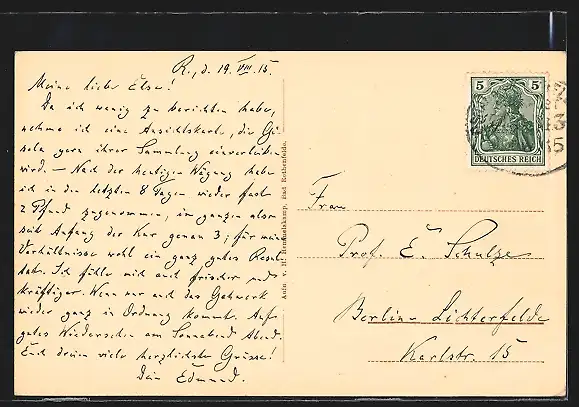 R., d. 19. VIII. 15.
Meine liebe Else!
Da ich wenig zu berichten habe,
nehme ich eine Ansichtskarte, die Gisela
gern ihrer Sammlung einverleiben
wird. – Nach der heutigen Wägung habe
ich in den letzten 8 Tagen wieder fast
2 Pfund zugenommen, im ganzen also
seit Anfang der Kur genau 3; für meine
Verhältnisse wohl ein ganz gutes Resul-
tat. Ich fühle mich auch frischer und
kräftiger. Wenn nur auch das Gehwerk
wieder ganz in Ordnung kommt. Auf
gutes Wiedersehen am Sonnabend Abend.
Euch dreien viele herzlichste Grüsse!
Dein Edmund.
Aufn. v. H. Bad Rothenfelde.
5 5
DEUTSCHES REICH
Frau
Prof. E. Schulze
Berlin-Lichterfelde
Karlstr. 15